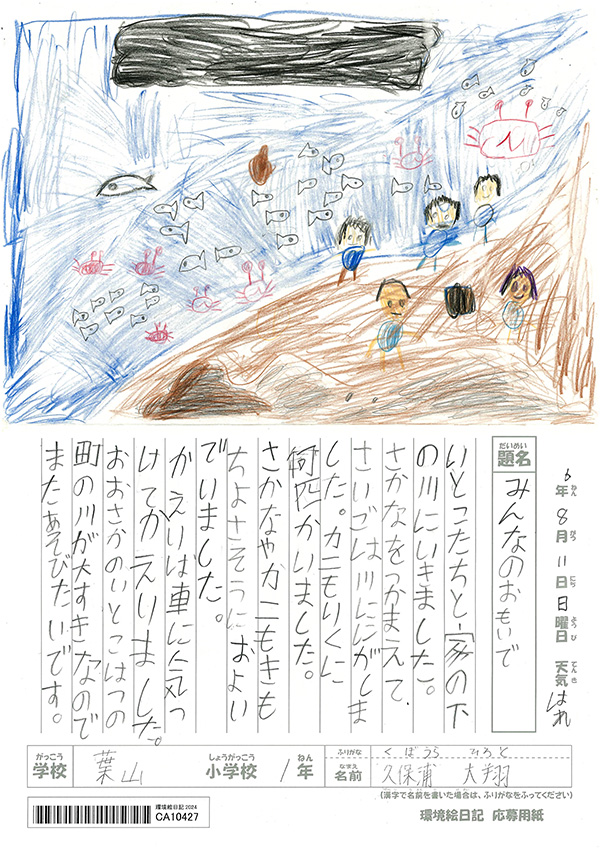 6年8月11日日曜日 天気はれ
ねん がつ にち ようび てんき
だいめい
題名
みんなのおもいで
いとこたちと家の下
の川にいきました。
さかなをつかまえて、
さいごは川ににがしま
した。カニもりくに
何匹かいました。
さかなやカニもきも
ちよさそうにおよい
でいました。
かえりは車に気っ
けてかえりました。
おおさかのいとこはつの
町の川が大すきなので
またあそびたいです。
がっこう しょうがっこう ねん
学校 葉山 小学校 1年
ふりがな くぼうら ひろと
なまえ
名前 久保浦 大翔
(漢字で名前を書いた場合は、ふりがなをふってください)
環境絵日記2024
CA10427
環境絵日記 応募用紙